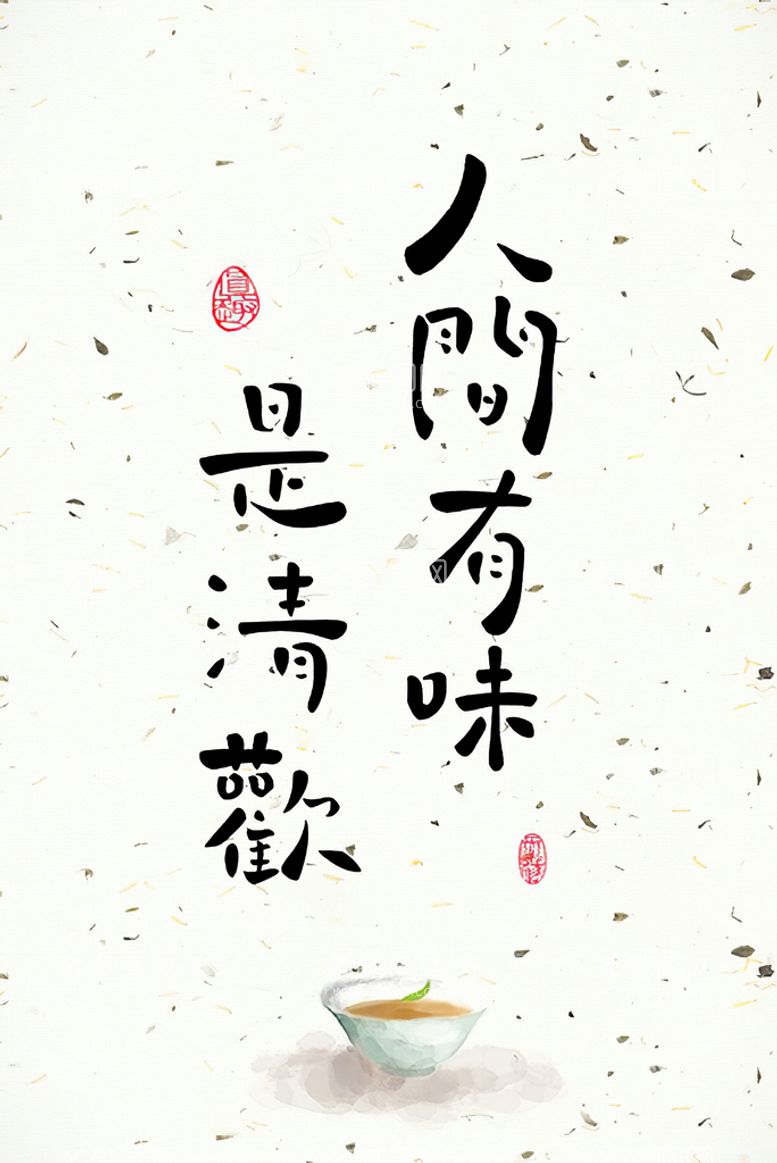 人間有味
是清歡